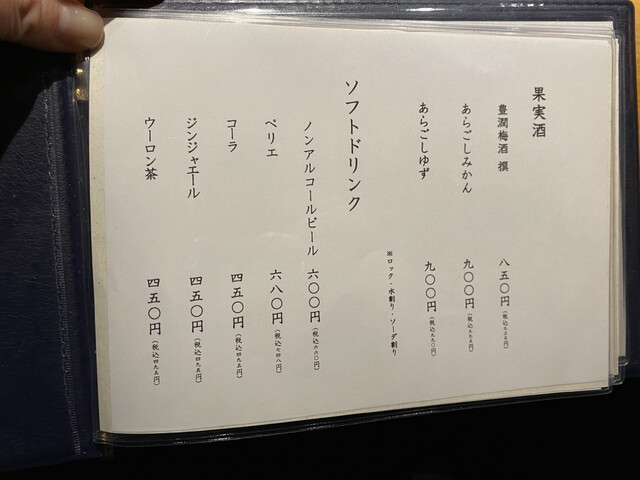 果実酒
豊潤梅酒 撰 八五〇円(税込九三五円)
あらごしみかん 九〇〇円(税込九九五円)
あらごしゆず 九〇〇円(税込九九〇円)
※ロック・水割り・ソーダ割り
ソフトドリンク
ノンアルコールビール 六〇〇円(税込六六〇円)
ペリエ 六八〇円(税込七四八円)
コーラ 四五〇円(税込四九五円)
ジンジャエール 四五〇円(税込四九五円)
ウーロン茶 四五〇円(税込四九五円)